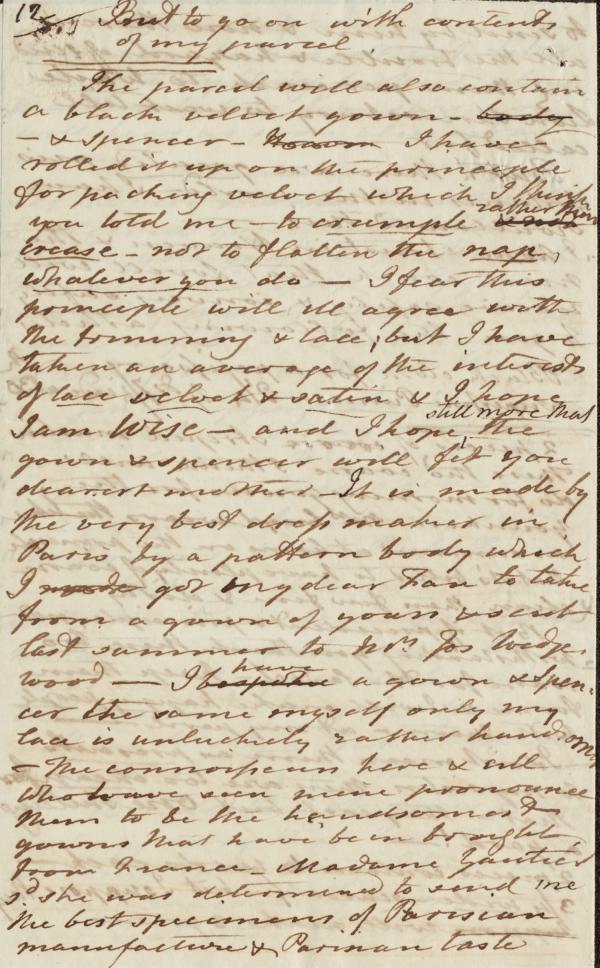 12
But to go on with contents
of my parcel
The parcel will also contain
a black velvet gown - body
- & spencer - I have
rolled it up on the principle
for packing velvet which I think
you told me - to crumple rather than
crease - not to flatten the nap,
whatever you do - I fear this
principle will ill agree with
the trimming & lace; but I have
taken an average of the interests
of lace velvet & satin & I hope
I am Wise - and I hope still more that the
gown & spencer will fit you
dearest mother - It is made by
the very best dress maker in
Paris by a pattern body which
I made got my dear Fan to take
from a gown of yours & sent
last summer to Mrs. Jos Wedge.
wood - I bespoke have a gown & spen-
cer the same myself only my
lace is unluckily rather handsomer
- The connoisseurs here & all
who have seen mine pronounce
them to be the handsomest
gowns that have been brought
from France - Madame Gautier
sd. she was determined to send me
the best specimens of Parisian
manufacture & Parisian taste